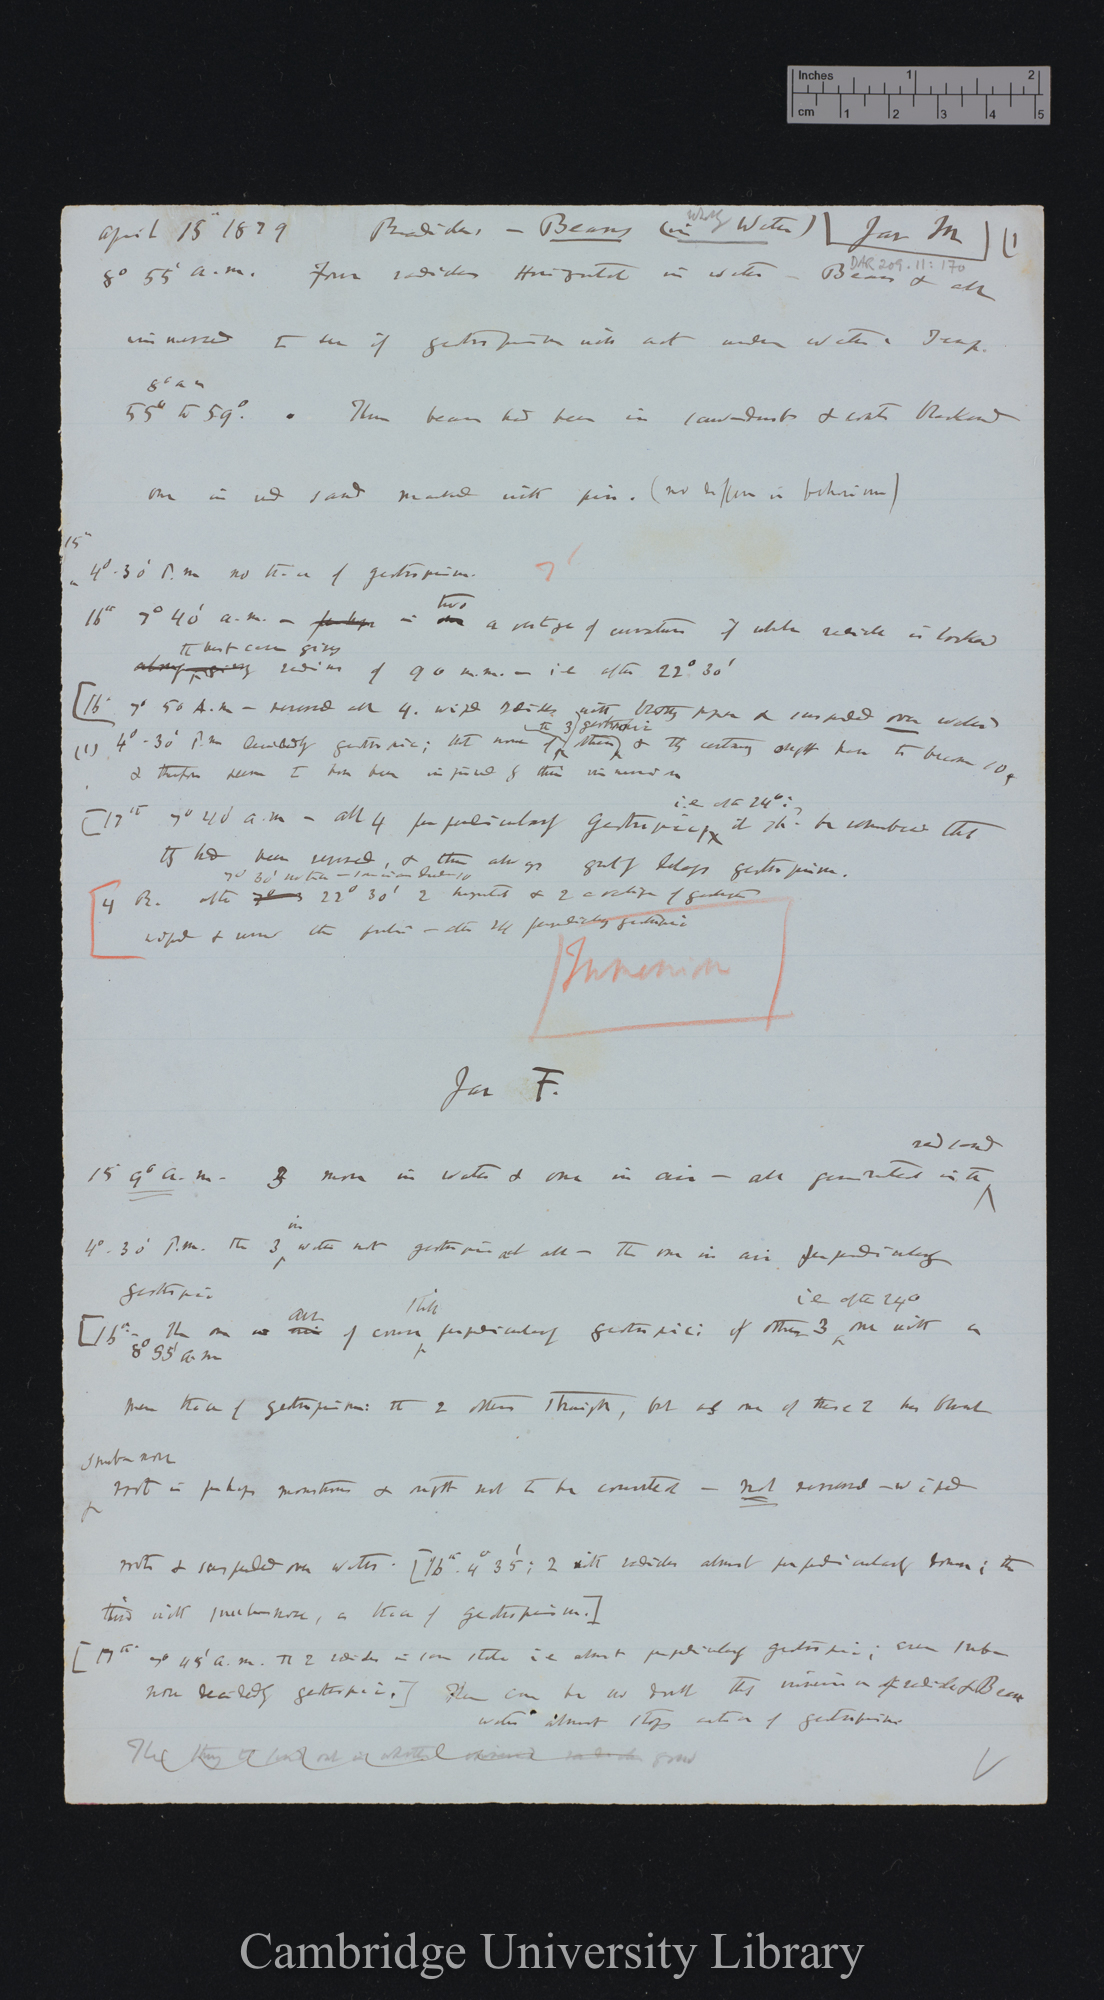 Inches 1 2
cm 1 2 3 4 5
April 15th 1879 Radicles — Beans (in wholly Water) Jar M (1
DAR 209.11: 170
8° 55' a.m. Four radicles Horizontal in water — Beans & all
immersed to see if geotropism will act under water. Temp.
8° a m
55° to 59°. These beans had been in sawdust & roots blackened
one in red sand marked with pin. (no differ in behaviour)
15th
4°.30' P.m no trace of geotropism. 7'
16th 7° 40' a.m. — perhaps in one two a vestige of curvature if whole radicle is looked
the best case gives radius of 90 m.m. — i.e. after 22° 30'
[16th 7° 50 A.m — removed all 4. wiped radicles with blotting paper & suspended over water
(1) 4°.30' P.m decidedly geotropic; but none of the 3 geotropic them & they certainly ought have to become so,
& therefore seem to have been injured by their immersion
i.e. after 24°;
[17th 7° 40' a.m — all 4 perpendicularly geotropic, it shd. be remembered that
they had been reversed, & this always greatly delays geotropism.
4 B. after 22° 30' 2 & 2 a vestige of
wiped & — after 24 perpendicularly geotropic
Immersion
Jar F.
red sand
15 9° a.m. 3 more in water & one in air — all germinated in the
4°.30' P.m. the 3 in water not geotropic at all — the one in air perpendicularly
geotropic
i.e. after 24°
[16th The one in air of course still perpendicularly geotropic; of other 3 one with a
8° 55' a.m
mere trace of geotropism: the 2 others straight, but as one of these 2 has blunt
root is perhaps monstrous & ought not to be counted — not reversed — wiped
roots & suspended over water. [16th. 4° 35'; 2 with radicles almost perpendicularly down; the
third with , a trace of geotropism.]
[17th 7° 45' a.m. The 2 radicles in same state i.e. almost perpendicularly geotropic; even
nose decidedly geotropic.] There can be no doubt that immersion of radicles & Bean
water almost stops action of geotropism
The thing to find out is whether radicles grow
Cambridge University Library